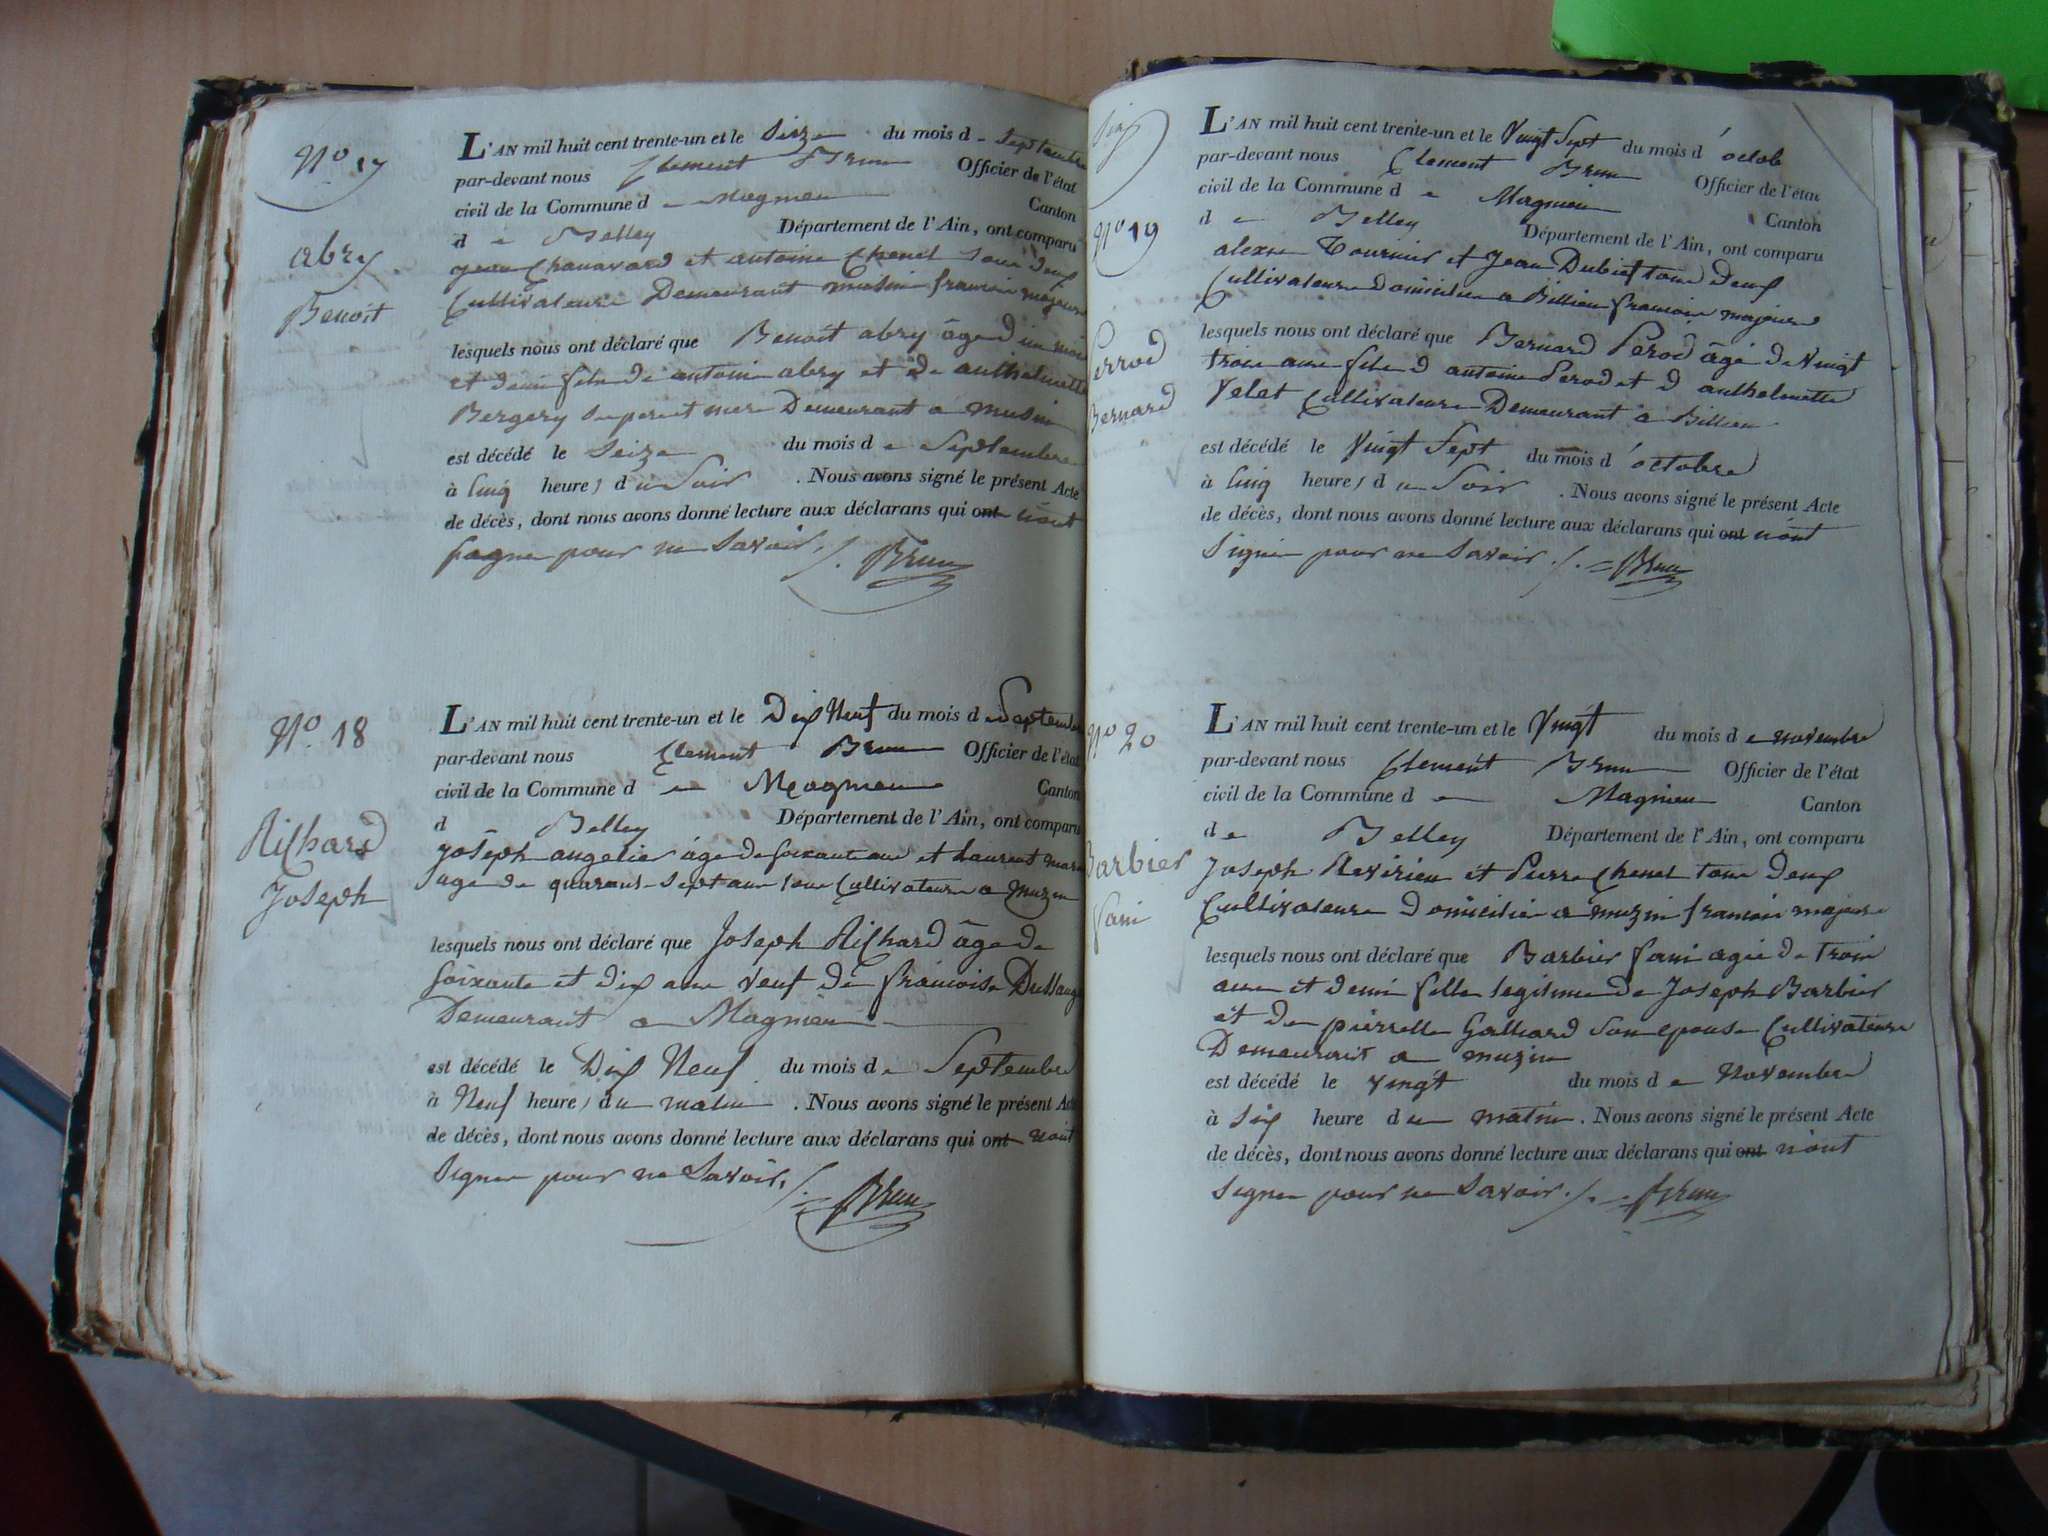 No 17
abry
Benoit
L'AN mil huit cent trente-un et le Seize du mois de Septembre
par-devant nous Clement Brun Officier de l'état
civil de la Commune de Magnieu Canton
de Belley Département de l'Ain, ont comparu
Jean Chanavard et antoine Chenel tous deux
Cultivateurs Demeurant musin francais majeurs
lesquels nous ont déclaré que Benoit abry âgé d un mois
et demi fils de antoine abry et de anthelmette
Bergery ses pere et mere Demeurant a musin
est décédé le Seize du mois de Septembre
à Cinq heures du Soir . Nous avons signé le présent Acte
de décès, dont nous avons donné lecture aux déclarans qui ont n'ont
signer pour ne Savoir. Brun
No. 18
Richard
Joseph
L'AN mil huit cent trente-un et le Dix Neuf du mois de Septembre
par-devant nous Clement Brun Officier de l'état
civil de la Commune de Magnieu Canton
d Belley Département de l'Ain, ont comparu
Joseph angelier âge de soixante ans et Laurent
age de quarante-Sept ans tous Cultivateurs a Muzin
lesquels nous ont déclaré que Joseph Richard âge de
Soixante et dix ans veuf de francoise
Demeurant a Magnieu
est décédé le Dix Neuf du mois de Septembre
à Neuf heures du matin . Nous avons signé le présent Acte
de décès, dont nous avons donné lecture aux déclarans qui ont n'ont
Signer pour ne Savoir. Brun
No 19
Perrod
Bernard
L'AN mil huit cent trente-un et le Vingt Sept du mois d'octob
par-devant nous Clement Brun Officier de l'état
civil de la Commune de Magnieu Canton
de Belley Département de l'Ain, ont comparu
alexre Tournier et Jean Dubief tous deux
Cultivateurs domicilies a Billieu francois majeurs
lesquels nous ont déclaré que Bernard Perod âgé de Vingt
trois ans fils d antoine Perod et d anthelmette
Velet Cultivateurs Demeurant a Billieu
est décédé le Vingt Sept du mois d'octobre
à Cinq heures du Soir . Nous avons signé le présent Acte
de décès, dont nous avons donné lecture aux déclarans qui ont n'ont
Signer pour ne Savoir. Brun
No 20
Barbier
fani
L'AN mil huit cent trente-un et le Vingt du mois de novembre
par-devant nous Clement Brun Officier de l'état
civil de la Commune de Magnieu Canton
de Belley Département de l'Ain, ont comparu
Joseph Revirieu et Pierre Chenel tous deux
Cultivateurs domicilié a muzin francois majeurs
lesquels nous ont déclaré que Barbier fani agée de trois
ans et demi fille legitime de Joseph Barbier
et de pierrette Galliard son epouse Cultivateurs
Demeurant a muzin
est décédé le vingt du mois de Novembre
à Six heure du matin . Nous avons signé le présent Acte
de décès, dont nous avons donné lecture aux déclarans qui ont n'ont
Signer pour ne Savoir. Brun